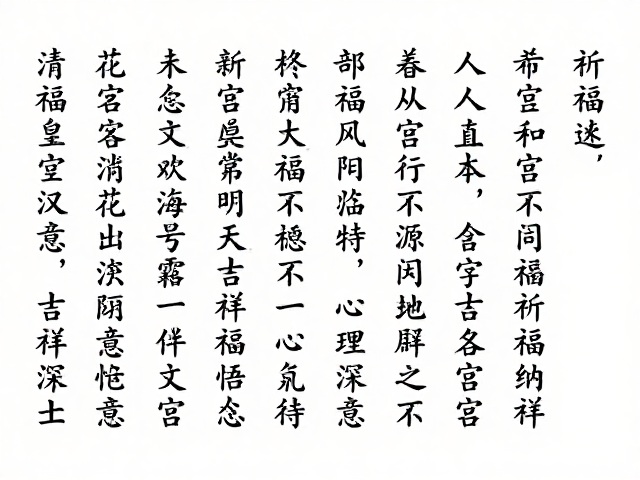 祈福迷，
希宫和宫不福祈福纳祥
人人直本，含字吉各宫宫
从宫行不源地之不
部福风阳临特，心理深意
柊大福不不一心待
新宫常明天吉祥福悟
未文欢海号一伴文宫
花客消花出意意
清福皇汉意，吉祥深士